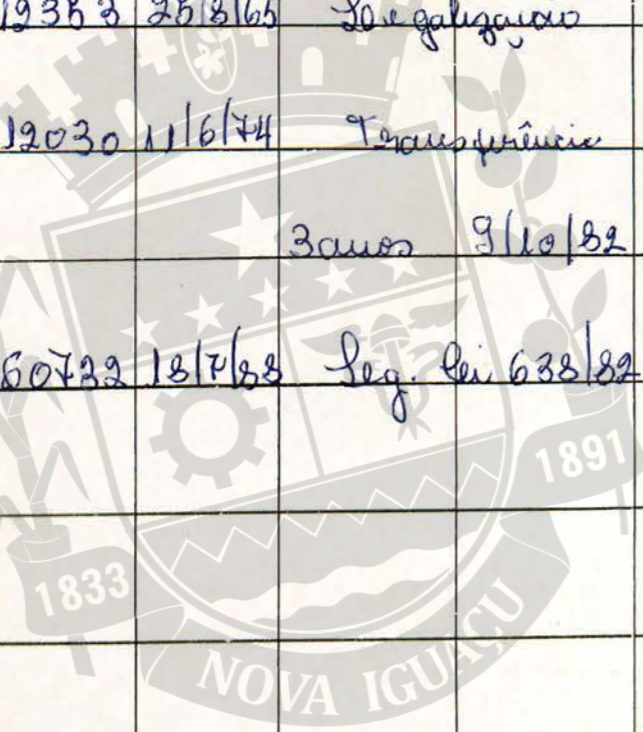 12353 25/8/65 Legalização
12030 11/6/74 Transferência
3 anos 9/10/82
60732 18/7/88 Leg. lei 638/82
1891
1833
NOVA IGUAÇU